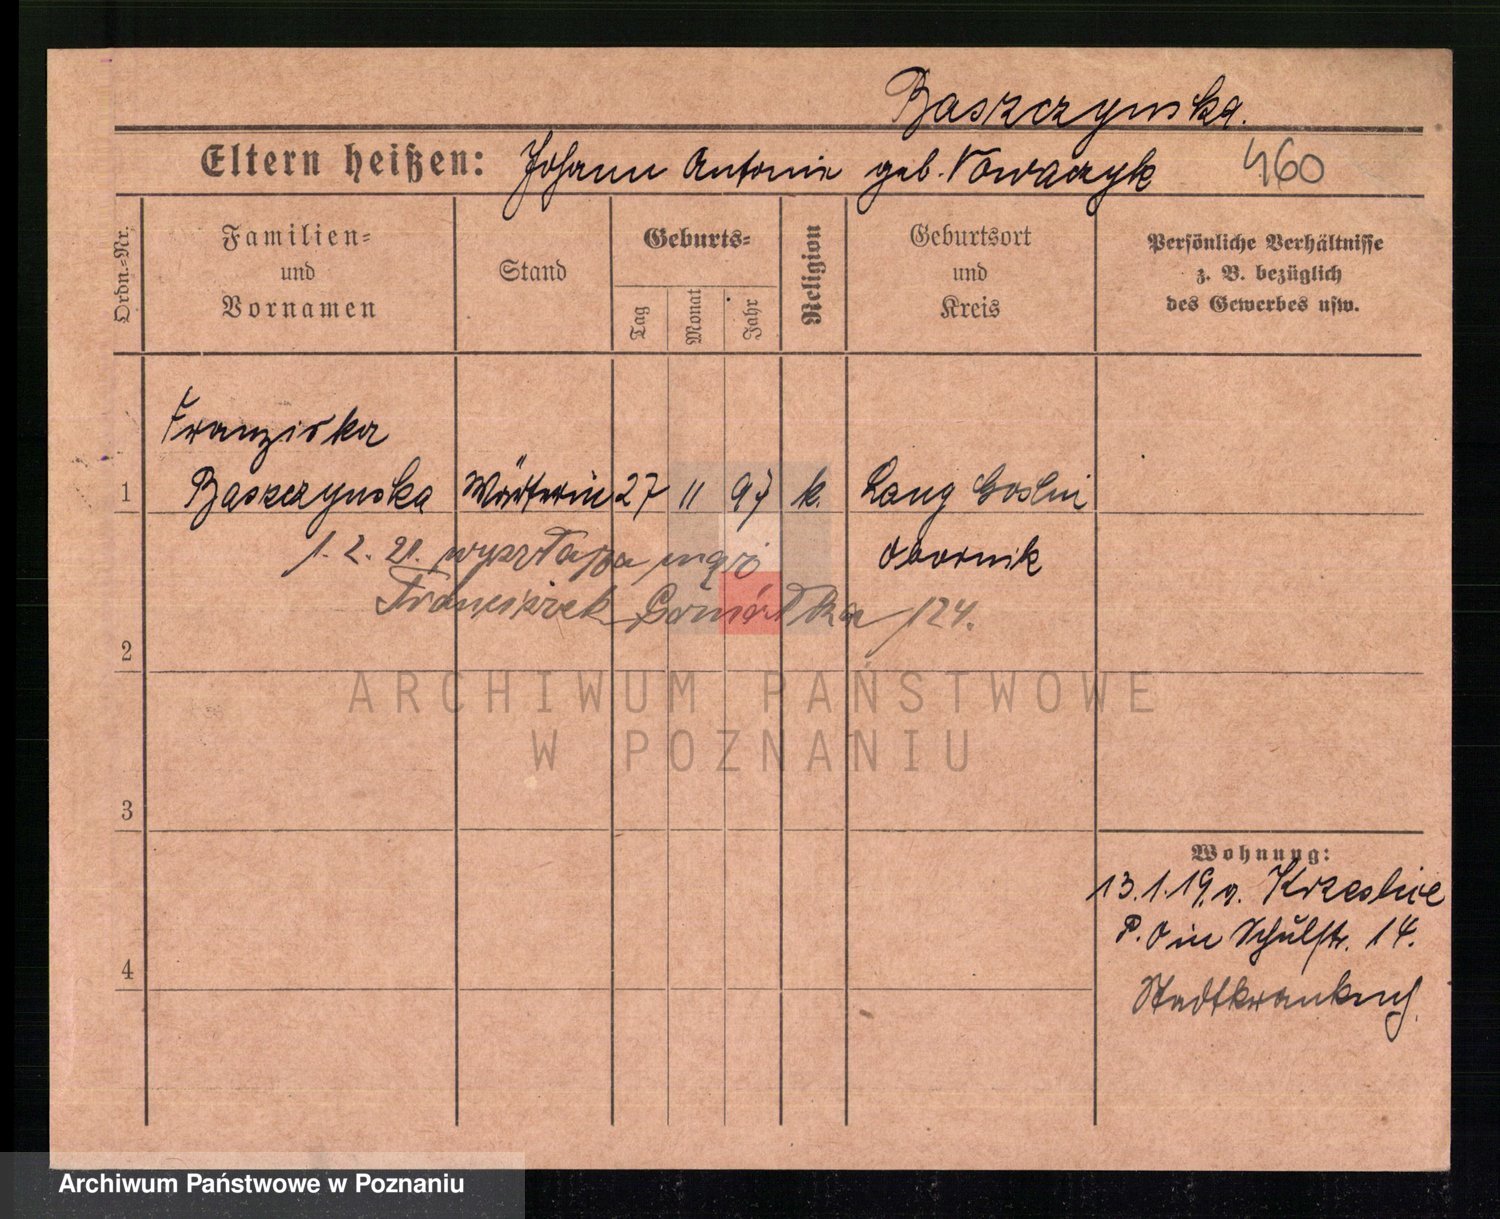 Baszczynska.
Eltern heißen: Johann Antonie geb. Nowaczyk 460
Ordn.-Nr.
Familien-
und
Vornamen
Stand
Geburts-
Tag
Monat
Jahr
Religion
Geburtsort
und
Kreis
Persönliche Verhältnisse
z. B. bezüglich
des Gewerbes usw.
Franziska
1 Baszczynska Wärterin 27 11 97 k. Lang Goslin
1. 2. 21. wyszła za mąż Obornik
Franciszek /124.
2
ARCHIWUM PAŃSTWOWE
W POZNANIU
3
Wohnung:
13.1.19. v. Krzeslice
P. O in Schulstr. 14.
4
Stadtkrankenh.
Archiwum Państwowe w Poznaniu